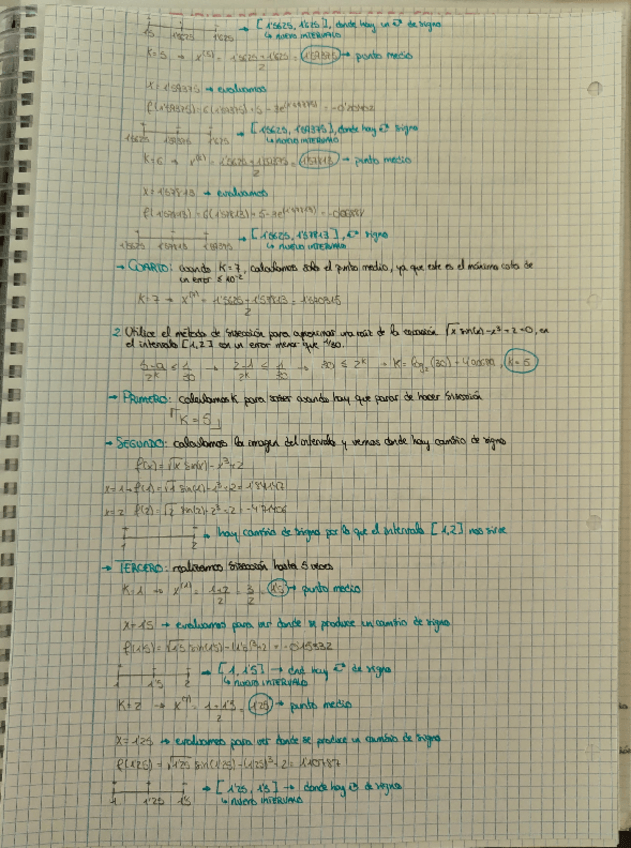 1'5 1'5625 1'625 → [1'5625, 1'625], donde hay un ↶ de signo
↳ NUEVO INTERVALO
K=5 → x⁽⁵⁾ = 1'5625+1'625 / 2 = 1'59375 → punto medio
x=1'59375 → evaluamos
1'5625 1'59375 1'625 → [1'5625, 1'59375], donde hay ↶ signo
↳ NUEVO INTERVALO
K=6 → x⁽⁶⁾ = 1'5625+1'59375 / 2 = 1'57813 → punto medio
x=1'57813 → evaluamos
1'5625 1'57813 1'59375 → [1'5625, 1'57813], ↶ signo
↳ NUEVO INTERVALO
→ CUARTO: cuando K=7, calculamos solo el punto medio, ya que este es el máximo cota de
un error ≤ 10⁻²
K=7 → x⁽⁷⁾ = 1'5625+1'57813 / 2 =
2. Utilice el método de bisección para aproximar una raíz de la ecuación √x sin(x) - x³ + 2 = 0, en
el intervalo [1,2] con un error menor que 1/30.
b-a / 2ᵏ ≤ 1/30 → 2-1 / 2ᵏ ≤ 1/30 → 30 ≤ 2ᵏ → K = log₂(30) = K=5
→ PRIMERO: calculamos K para saber cuando hay que parar de hacer bisección
K=5
→ SEGUNDO: calculamos la imagen del intervalo y vemos donde hay cambio de signo
f(x) = √x sin(x) - x³ + 2
x=1 → f(1) = √1 sin(1) - 1³ + 2 = 1'84147
x=2 f(2) = √2 sin(2) - 2³ + 2 = -4'71406
1 2 → hay cambio de signo por lo que el intervalo [1,2] nos sirve
→ TERCERO: realizamos bisección hasta 5 veces
K=1 → x⁽¹⁾ = 1+2 / 2 = 3 / 2 = 1'5 → punto medio
x=1'5 → evaluamos para ver donde se produce un cambio de signo
f(1'5) = √1'5 sin(1'5) - (1'5)³ + 2 = -0'15332
1 1'5 2 → [1, 1'5] → hay ↶ de signo
↳ NUEVO INTERVALO
K=2 → 1+1'5 / 2 = 1'25 → punto medio
x=1'25 → evaluamos para ver donde se produce un cambio de signo
f(1'25) = √1'25 sin(1'25) - (1'25)³ + 2 = 1'10787
1 1'25 1'5 → [1'25, 1'5] → donde hay ↶ de signo
↳ NUEVO INTERVALO